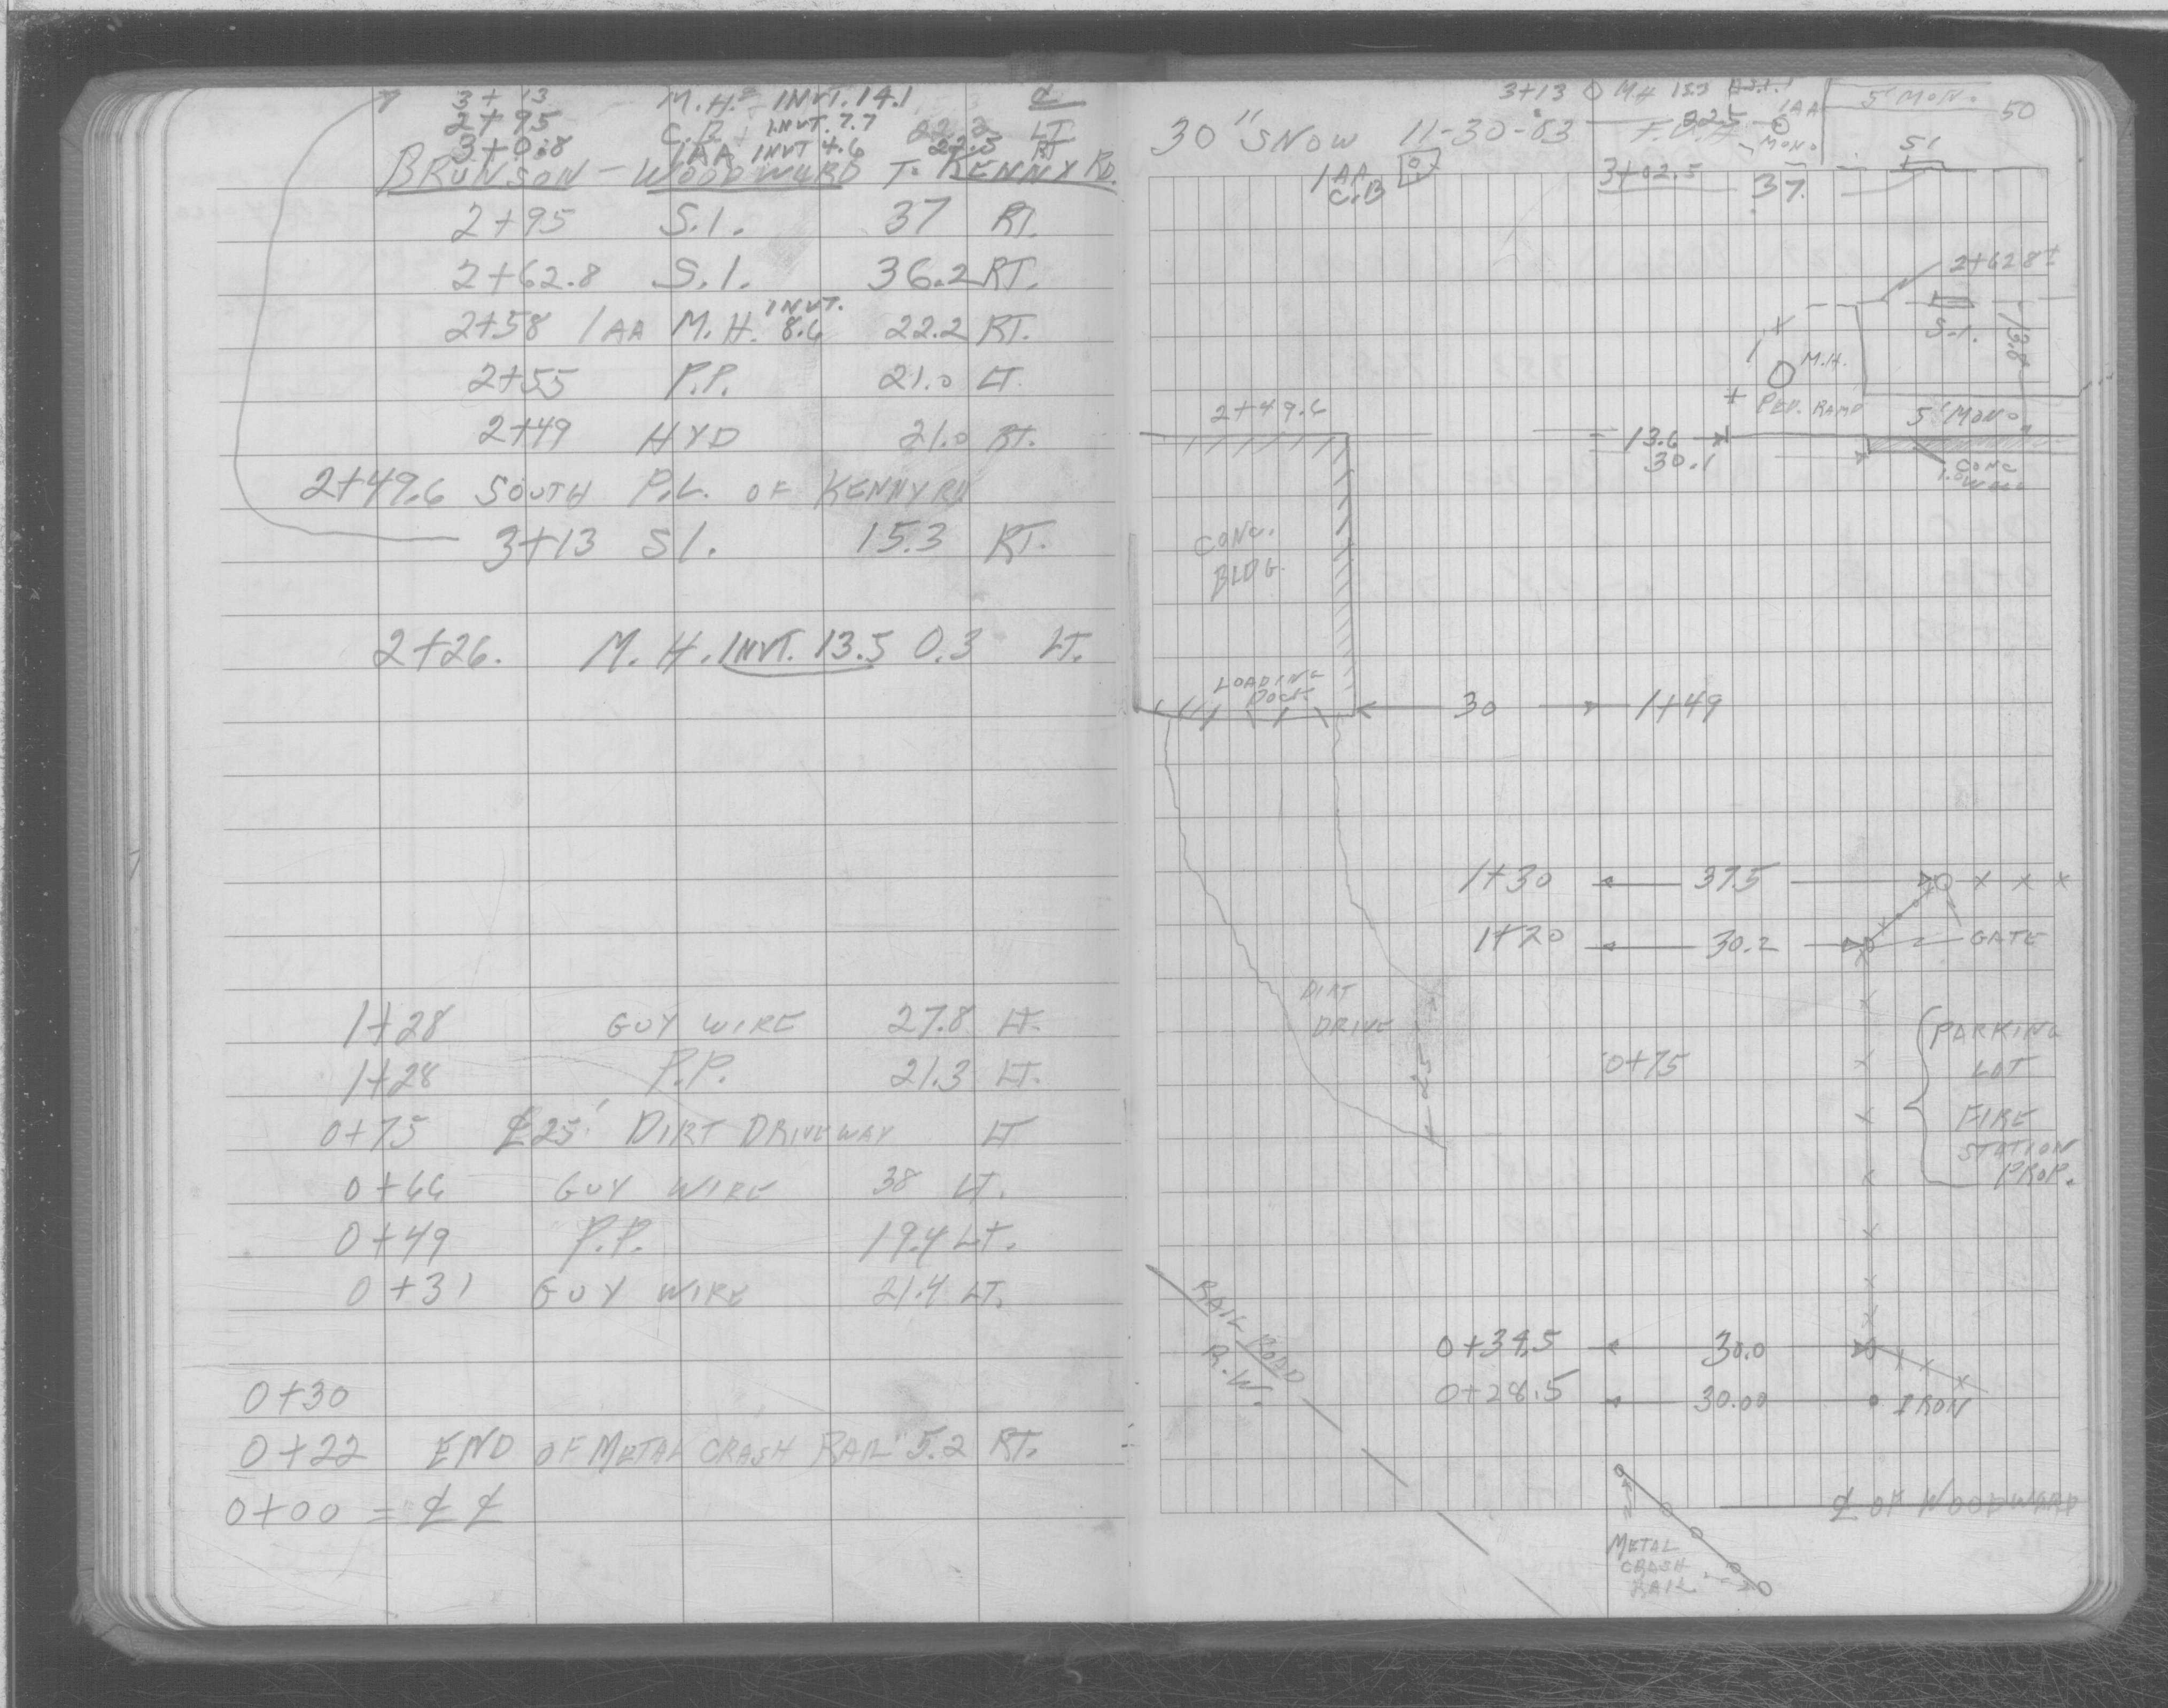 3+13 M.H. INVT. 14.1 ℄
2+95 C.B. INVT. 7.7 22.2 LT.
3+0.8 1AA INVT 4.6 22.5 RT
BRUNSON - WOODWARD To KENNY RD.
2+95 S.I. 37 RT.
2+62.8 S.I. 36.2 RT.
2+58 1AA M.H. INVT. 8.6 22.2 RT.
2+55 P.P. 21.0 LT.
2+49 HYD 21.0 RT.
2+49.6 SOUTH P.L. OF KENNY RD
3+13 S1. 15.3 RT.
2+26. M.H. INVT. 13.5 0.3 LT.
1+28 GUY WIRE 27.8 LT.
1+28 P.P. 21.3 LT.
0+75 ℄ 25' DIRT DRIVEWAY LT
0+66 GUY WIRE 38 LT.
0+49 P.P. 19.4 LT.
0+31 GUY WIRE 21.4 LT.
0+30
0+22 END OF METAL CRASH RAIL 5.2 RT.
0+00 = ℄ ℄
3+13 MH 15.3
5' MONO.
50
30" SNOW 11-30-83
22.5 1AA
MONO
1AA
C.B
3+02.5 37.
S1
2+62.8±
S.I.
13.8
M.H.
PED. RAMP
5' MONO.
2+49.6
= 13.6
30.1
CONC
1.0 WALL
CONC.
BLDG.
LOADING
DOCK
30 1+49
1+30 37.5
1+20 30.2
GATE
DIRT
DRIVE
25
0+75
PARKING
LOT
FIRE
STATION
PROP.
RAIL ROAD
R.W.
0+34.5 30.0
0+28.5 30.00 IRON
℄ OF WOODWARD
METAL
CRASH
RAIL